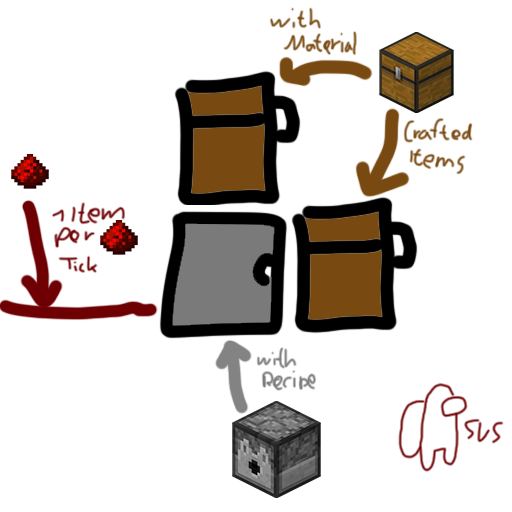 with
Material
Crafted
Items
1 Item
per
Tick
with
Recipe
sus